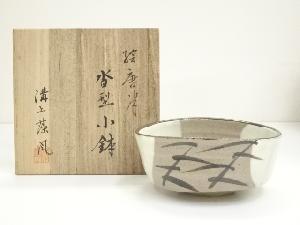 絵唐津
沓型 小鉢
溝上藻風